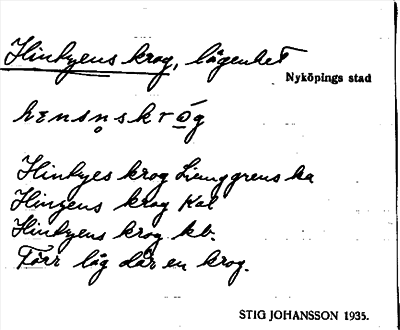 Hinkyens krog, lägenhet
Nyköpings stad
hensnskrog
Hinkyes krog Ljunggrens ka
Hinyens krog Kal
Hinkyens krog kb.
Förr låg där en krog.
STIG JOHANSSON 1935.